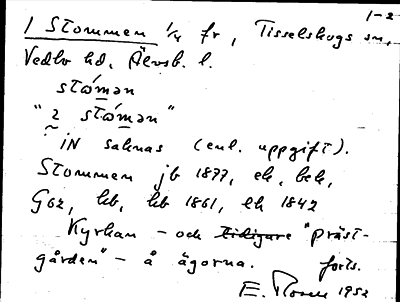 1-2
1 Stommen 1/4 fr, Tisselskogs sn,
Vedbo hd. Älvsb. l.
stώmən
"2 stώmən"
iN saknas (enl. uppgift).
Stommen jb 1877, ek, bek,
G62, hb, kb 1861, lk 1842
Kyrkan - och tidigare "präst-
gården" - å ägorna. forts.
E. Rosen 1952